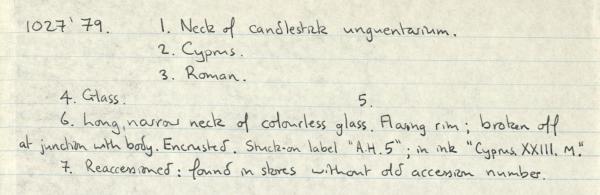 1027'79. 1. Neck of candlestick unguentarium.
2. Cyprus.
3. Roman.
4. Glass. 5.
6. Long, narrow neck of colourless glass. Flaring rim; broken off
at junction with body. Encrusted. Stuck-on label "A.H.5"; in ink "Cyprus XXIII. M."
7. Reaccessioned: found in stores without old accession number.